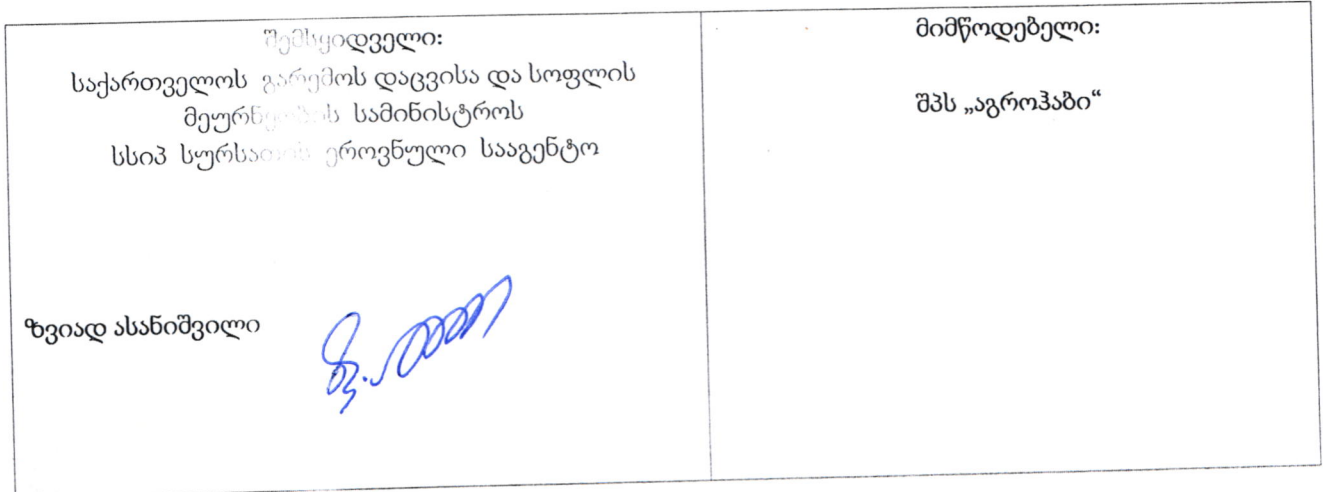 შემსყიდველი:
საქართველოს გარემოს დაცვისა და სოფლის
მეურნეობის სამინისტროს
სსიპ სურსათის ეროვნული სააგენტო
ზვიად ასანიშვილი
მიმწოდებელი:
შპს „აგროჰაბი“